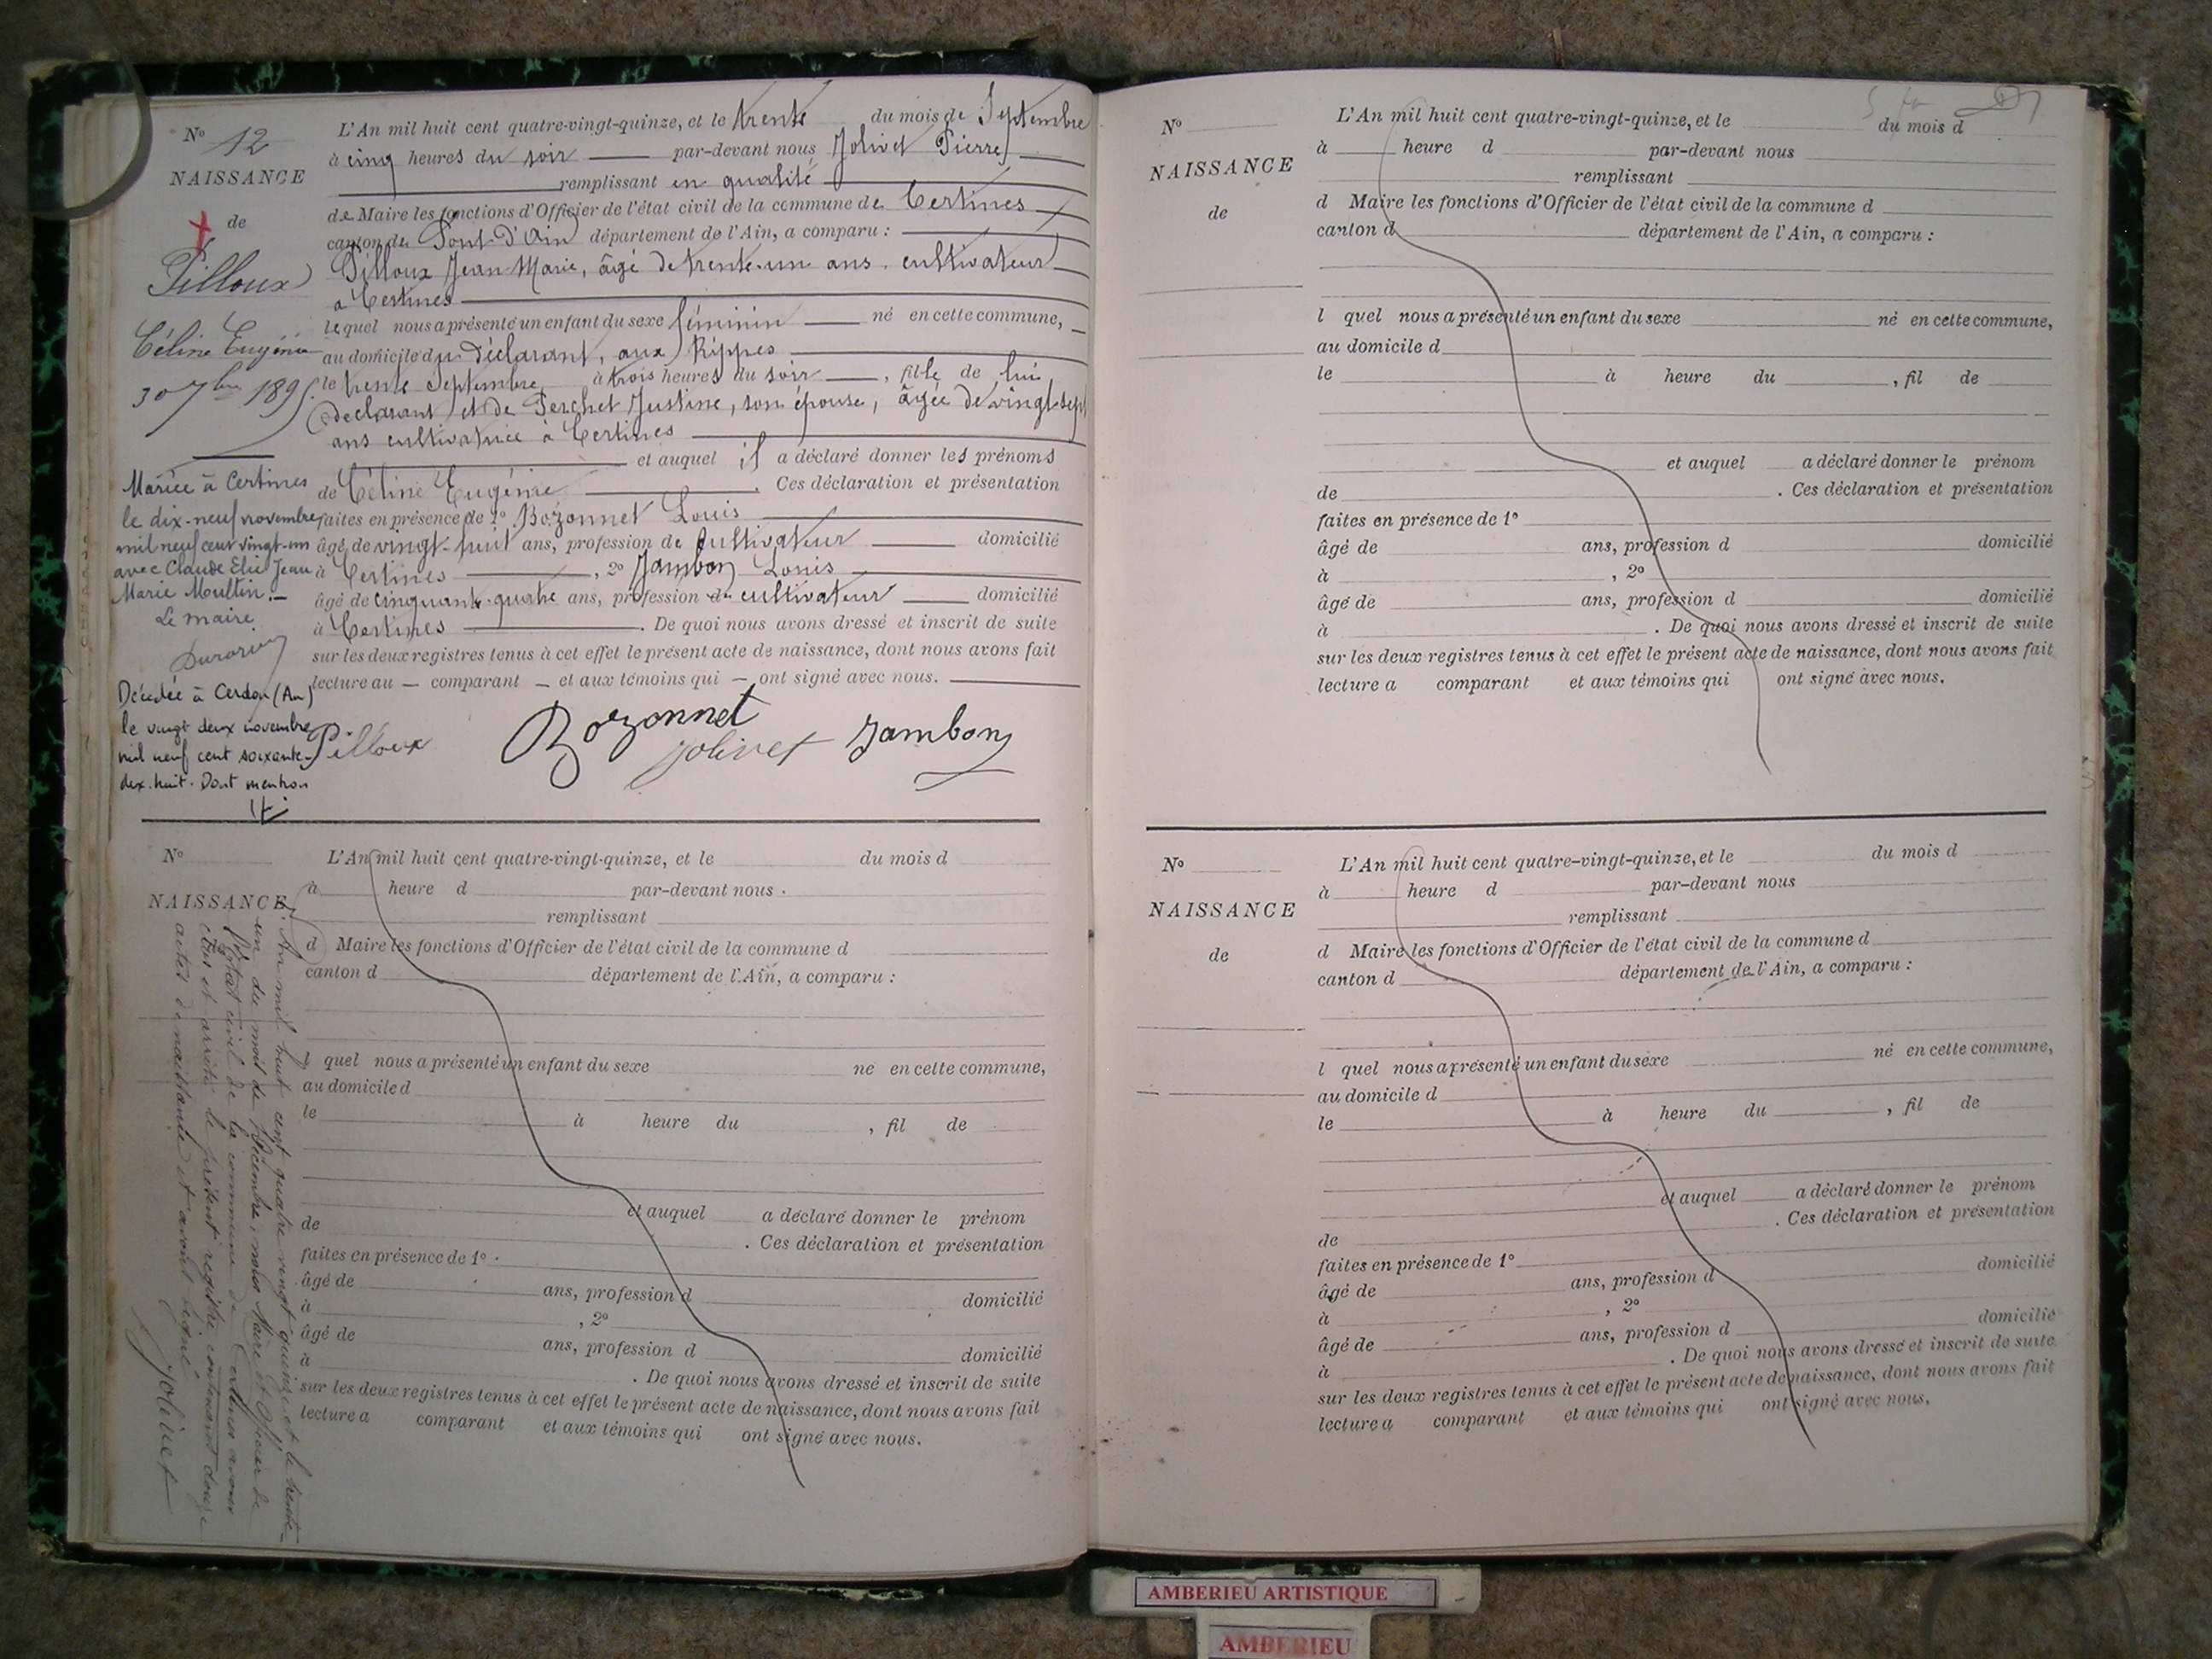 N° 12
NAISSANCE
de
Pilloux
Céline Eugénie
30 7bre 1895.
Mariée à Certines
le dix-neuf novembre
mil neuf cent vingt-un
avec Claude Elie Jean
Marie Moultin.-
Le maire
Décédée à Cerdon (Ain)
le vingt deux novembre
mil neuf cent soixante-
dix-huit. Dont mention
L'An mil huit cent quatre-vingt-quinze, et le trente du mois de Septembre
à cinq heures du soir par-devant nous Jolivet Pierre
remplissant en qualité
de Maire les fonctions d'Officier de l'état civil de la commune de Certines
canton de Pont-d'Ain département de l'Ain, a comparu :
Pilloux Jean-Marie, âgé de trente-un ans, cultivateur
à Certines
lequel nous a présenté un enfant du sexe féminin né en cette commune,
au domicile du déclarant, aux Rippes
le trente Septembre à trois heures du soir, fille de lui
déclarant et de Perchet Justine, son épouse, âgée de vingt-sept
ans cultivatrice à Certines
et auquel il a déclaré donner les prénoms
de Céline Eugénie. Ces déclaration et présentation
faites en présence de 1° Bozonnet Louis
âgé de vingt-huit ans, profession de cultivateur domicilié
à Certines, 2° Jambon Louis
âgé de cinquante-quatre ans, profession de cultivateur domicilié
à Certines. De quoi nous avons dressé et inscrit de suite
sur les deux registres tenus à cet effet le présent acte de naissance, dont nous avons fait
lecture au comparant et aux témoins qui ont signé avec nous.
Pilloux Bozonnet Jolivet Jambon
N°
NAISSANCE
L'An mil huit cent quatre-vingt-quinze, et le du mois d
à heure d par-devant nous
remplissant
d Maire les fonctions d'Officier de l'état civil de la commune d
canton d département de l'Ain, a comparu :
l quel nous a présenté un enfant du sexe né en cette commune,
au domicile d
le à heure du , fil de
et auquel a déclaré donner le prénom
de . Ces déclaration et présentation
faites en présence de 1°
âgé de ans, profession d domicilié
à , 2°
âgé de ans, profession d domicilié
à . De quoi nous avons dressé et inscrit de suite
sur les deux registres tenus à cet effet le présent acte de naissance, dont nous avons fait
lecture a comparant et aux témoins qui ont signé avec nous.
L'An mil huit cent quatre vingt quinze et le trente-
un du mois de Décembre, nous Maire et Officier de
l'Etat civil de la commune de Certines avons
clos et arrêté le présent registre contenant douze
actes de naissance et avons signé
Jolivet
N°
NAISSANCE
de
L'An mil huit cent quatre-vingt-quinze, et le du mois d
à heure d par-devant nous
remplissant
d Maire les fonctions d'Officier de l'état civil de la commune d
canton d département de l'Ain, a comparu :
l quel nous a présenté un enfant du sexe né en cette commune,
au domicile d
le à heure du , fil de
et auquel a déclaré donner le prénom
de . Ces déclaration et présentation
faites en présence de 1°
âgé de ans, profession d domicilié
à , 2°
âgé de ans, profession d domicilié
à . De quoi nous avons dressé et inscrit de suite
sur les deux registres tenus à cet effet le présent acte de naissance, dont nous avons fait
lecture a comparant et aux témoins qui ont signé avec nous.
N°
NAISSANCE
de
L'An mil huit cent quatre-vingt-quinze, et le du mois d
à heure d par-devant nous
remplissant
d Maire les fonctions d'Officier de l'état civil de la commune d
canton d département de l'Ain, a comparu :
l quel nous a présenté un enfant du sexe né en cette commune,
au domicile d
le à heure du , fil de
et auquel a déclaré donner le prénom
de . Ces déclaration et présentation
faites en présence de 1°
âgé de ans, profession d domicilié
à , 2°
âgé de ans, profession d domicilié
à . De quoi nous avons dressé et inscrit de suite
sur les deux registres tenus à cet effet le présent acte de naissance, dont nous avons fait
lecture a comparant et aux témoins qui ont signé avec nous.
AMBERIEU ARTISTIQUE
AMBERIEU